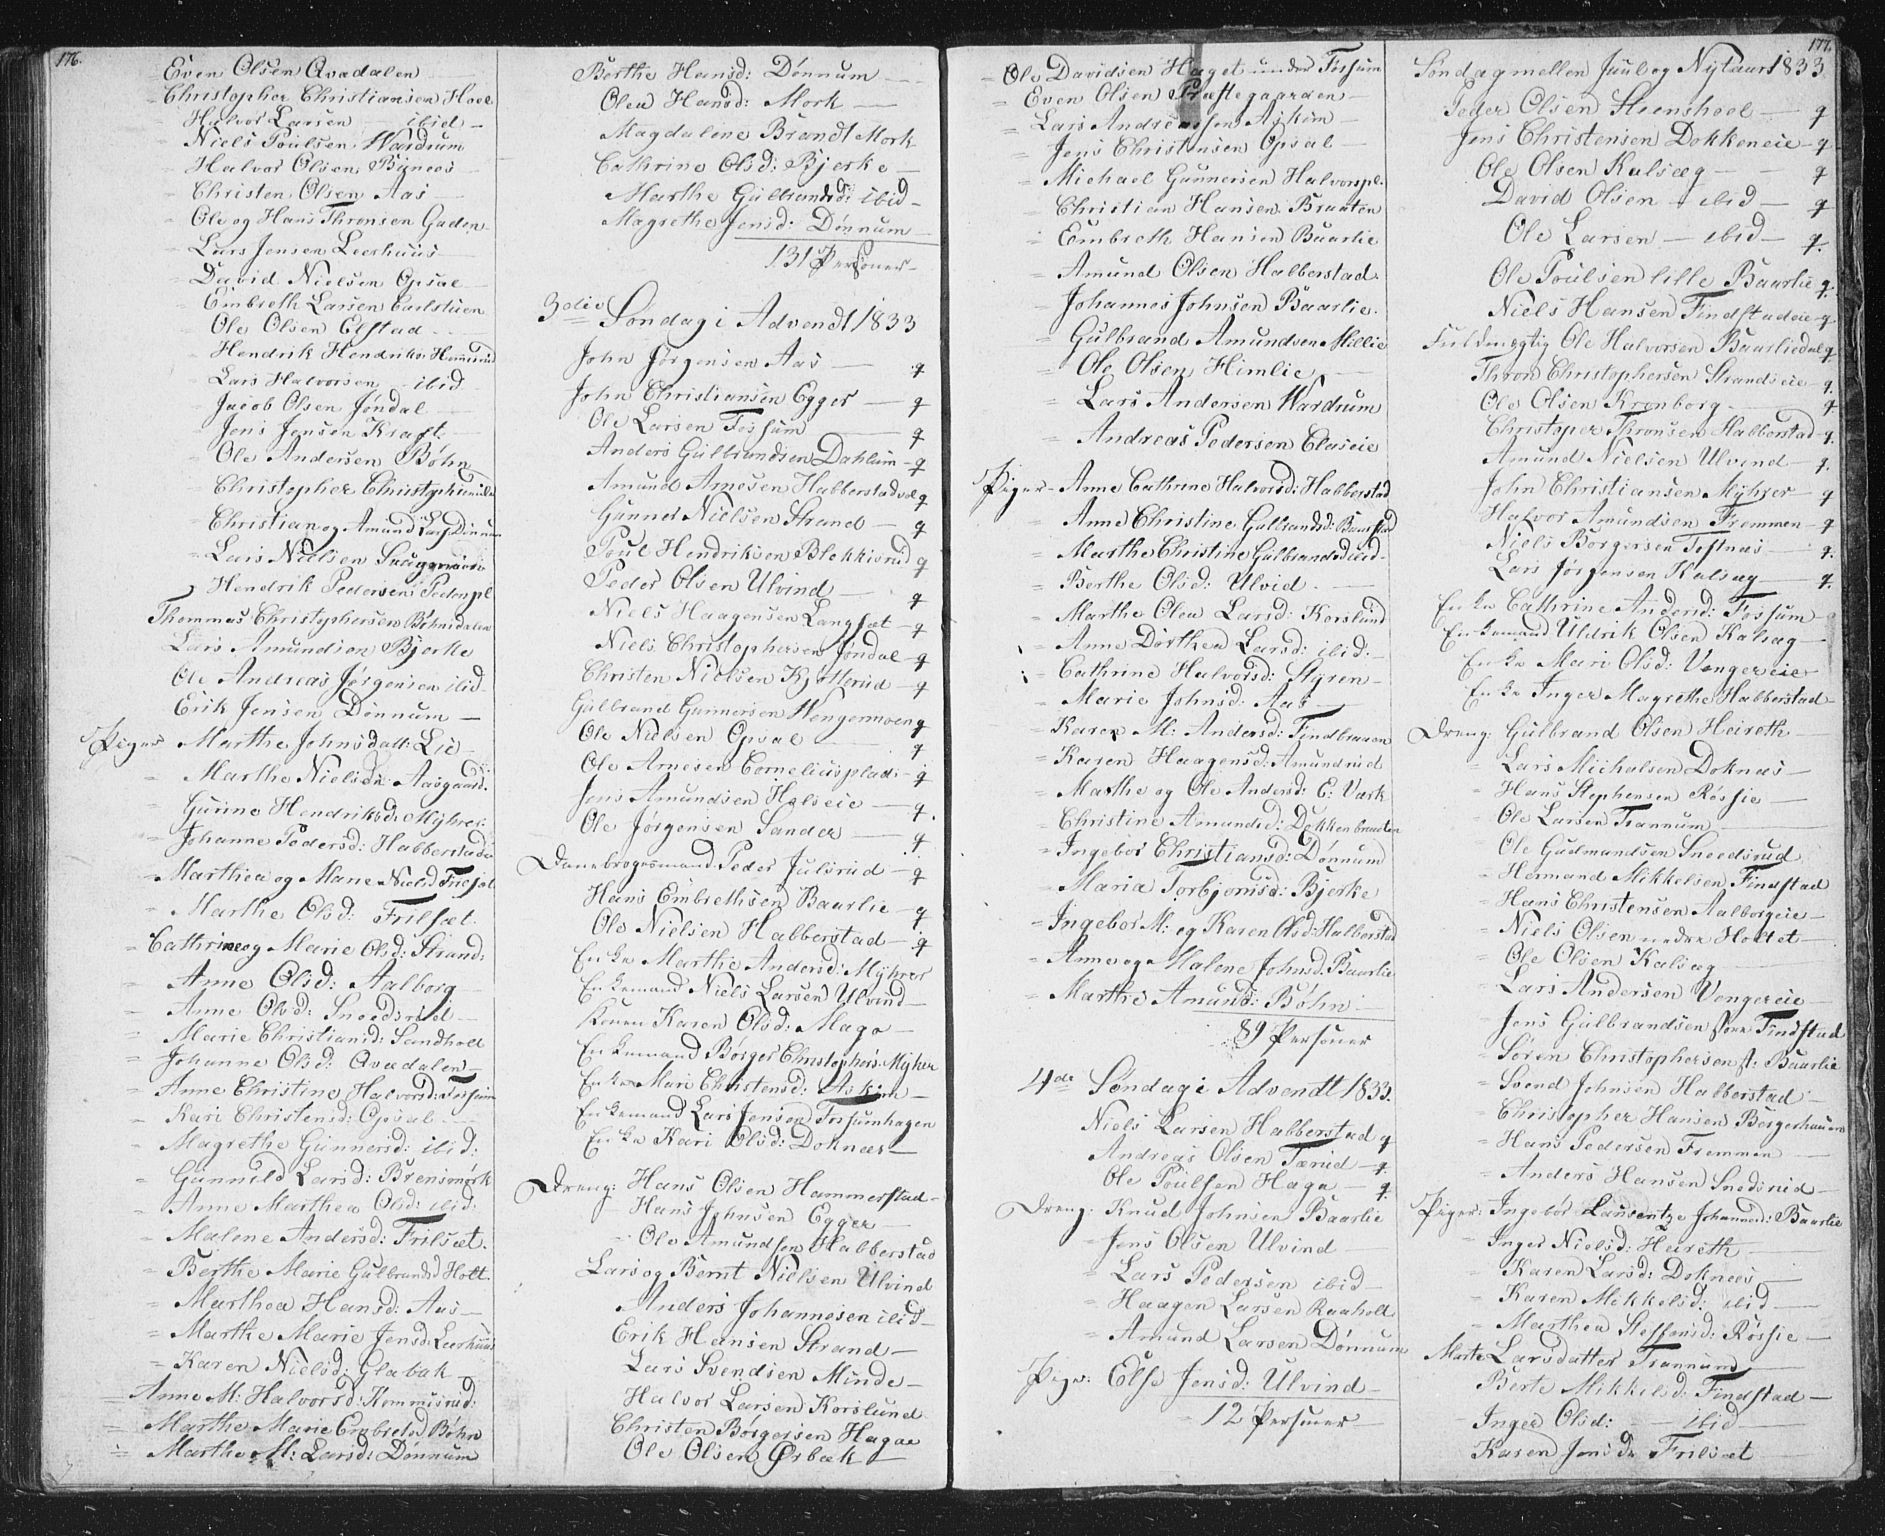 176.
Even Olsen Qvadalen
Christopher Christiansen Hoel
Halvor Larsen ibid
Niels Poulsen Wardrum
Halvor Olsen
Christen Olsen Aas
Ole og Hans Thronsen Guden
Lars Jensen Leerhuus
David Nielsen Opsal
Embreth Larsen
Ole Olsen Elstad
Hendrik Hendriks:
Lars Halvorsen ibid
Jacob Olsen Jøndal
Jens Jensen Kraft
Ole Andersen Bøhn
Christopher
Christian og Amund Lars: Dønnum
Lars Nielsen
Hendrik Pedersens Pederspl
Thommas Christophersen Bøhnsdalen
Lars Amundsen Bjerke
Ole Andreas Jørgensen ibid
Erik Jensen Dønnum
Piger Marthe Johnsdatt: Lie
Marthe Nielsdr Aasgaard
Gurine Hendriksd: Myhrer
Johanne Pedersd: Habberstad
Marthea og Mane Nielsd
Marthe Olsd: Frilsæt
Cathrine og Marie Olsd: Strand
Anne Olsd: Aalborg
Anne Olsd: Sneedsrud
Marie Christiansd: Sandholt
Johanne Olsd: Qvadalen
Anne Christine Halvorsd: Fossum
Kari Christensd: Opsal
Magrethe Gunnersd: ibid:
Gunnild Larsd: Brensmork
Anne Marthea Olsd: ibid:
Malene Andersd: Frilsæt.
Berthe Marie Gulbrandsd Holt.
Marthea Hansd: Aas
Marthe Marie Jensd: Leerhuus
Karen Nielsd: Glabak
Anne M: Halvorsd: Kommisrud:
Marthe Marie Embretsd Bøhn
Marthe M: Larsd: Dønnum
Berthe Hansd: Dønnum
Olea Hansd: Mork
Magdalene Brandt Mork
Cathrine Olsd: Bjerke
Marthe Gulbrandsd: ibid
Magrethe Jensd: Dønnum
131 Personer
3die Søndag i Advendt 1833
John Jørgensen Aas q
John Christiansen Egger q
Ole Larsen Fossum q
Anders Gulbrandsen Dahlum q
Amund Arnesen Habberstad q
Gunner Nielsen Strand q
Poul Hendriksen Blekkisrud q
Peder Olsen Ulvind q
Niels Haagensen Langsæt q
Niels Christophersen Jøndal q
Christen Nielsen Kjøtterud q
Gulbrand Gunnersen Wengermoen q
Ole Nielsen Opsal q
Ole Arnesen Corneliusplad q
Jens Amundsen Halseie q.
Ole Jørgensen Sander q
Danebrogesmand Peder Julsrud q
Hans Embrethsen Baarlie q
Ole Nielsen Habberstad q
Enke Marthe Andersd: Myhrer
Enkemand Niels Larsen Ulvind
Konen Karen Olsd: Maga
Enkemand Børger Christophers: Myhrer
Enke Mari Christensd: Askim
Enkemand Lars Jensen Fossumhagen
Enke Kari Olsd: Doknæs
Dreng: Hans Olsen Hammerstad
Hans Johnsen Egger
Ole Amundsen Habberstad
Lars og Bernt Nielsen Ulvind
Anders Johannesen ibid
Erik Hansen Strand
Lars Svendsen Minde
Halvor Larsen Korslund
Christen Børgersen Hagae
Ole Olsen Ørbæk
Ole Davidsen Haget under Fossum
Even Olsen Præstegaarden
Lars Andreassen Askim
Jens Christensen Opsal
Michael Gunnersen Halvorspl.
Christian Hansen Braaten
Embreth Hansen Baarlie
Amund Olsen Habberstad
Johannes Johnsen Baarlie.
Gulbrand Amundsen Millie
Ole Olsen Himlie
Lars Andersen Wardrum
Andreas Pedersen Elaseie
Piger Anne Cathrine Halvorsd: Habberstad
Anne Christine Gulbrandsd:
Marthe Christine Gulbrandsd ibid
Berthe Olsd: Ulvid.
Marthe Olea Larsd: Korslund
Anne Dorthea Larsd: ibid:
Cathrine Halvorsd: Styren
Marie Johnsd: Aas
Karen M: Andersd: Findbraaten
Karen Haagensd: Amundrud
Marthe og Ole Andersd: E: Værk
Christine Amundsd: Dokkenbraaten
Ingebor Christiansd: Dønnum
Maria Torbjornsd: Bjerke
Ingebor M: og Karen Olsd: Halberstad
Anne og Malene Johnsd: Baarlie
Marthe Amunds: Bøhn
89 Personer
4de Søndag i Advendt 1833.
Niels Larsen Habberstad q
Andreas Olsen Tærud q.
Ole Poulsen Haga q.
Dreng. Knud Johnsen Baarlie
Jens Olsen Ulvind
Lars Pedersen ibid
Haagen Larsen Raaholt
Amund Larsen Dønnum
Pige: Else Jensd: Ulvind
12 Personer
177.
Søndag mellen Juul og Nytaar 1833
Peder Olsen Steenshoel q
Jens Christensen Dokkeneie q
Ole Olsen Kalsæg q
David Olsen ibid q
Ole Larsen ibid q.
Ole Poulsen lille Baarlie q.
Niels Hansen Findstadeie q
Fuldmægtig Ole Halvorsen Baarliedal q
Thron Christophersen Strandseie q.
Ole Olsen Kronborg q
Christopher Thronsen Habberstad q.
Amund Nielsen Ulvend q.
John Christiansen Myhrer q
Halvor Amundsen Fremmen q
Niels Borgersen Toftnæs q.
Lars Jørgensen Kalsæg q.
Enke Cathrine Andersd: Fossum
Enkemand Uldrik Olsen Kalsæg
Enke Mari Olsd: Vengereie
Enke Inger Magrethe Habberstad
Dreng: Gulbrand Olsen Heireth
Lars Michalsen Doknæs
Hans Stephensen Røssie
Ole Larsen Trannum
Ole Gudmundsen Sneedsrud
Hermand Mikkelsen Findstad
Hans Christensen Aalborgeie
Niels Olsen nedre Holtet
Ole Olsen Kalsæg
Lars Andersen Vengereie
Jens Gulbrandsen store Findstad
Søren Christophersen st: Baarlie
Svend Johnsen Habberstad
Christopher Hansen Børgerhaven
Hans Pedersen Fremmen
Anders Hansen Snedsrud
Piger: Ingebor Laurentze Johannesd: Baarlie
Inger Nielsd: Heireth
Karen Larsd: Doknæs
Karen Mikkelsd: ibid
Marthea Steffensd: Røssie
Marte Larsdatter Trannum
Berte Mikkelsd: Findstad
Inger Olsd: ibid
Karen Jensdr Frilsæt